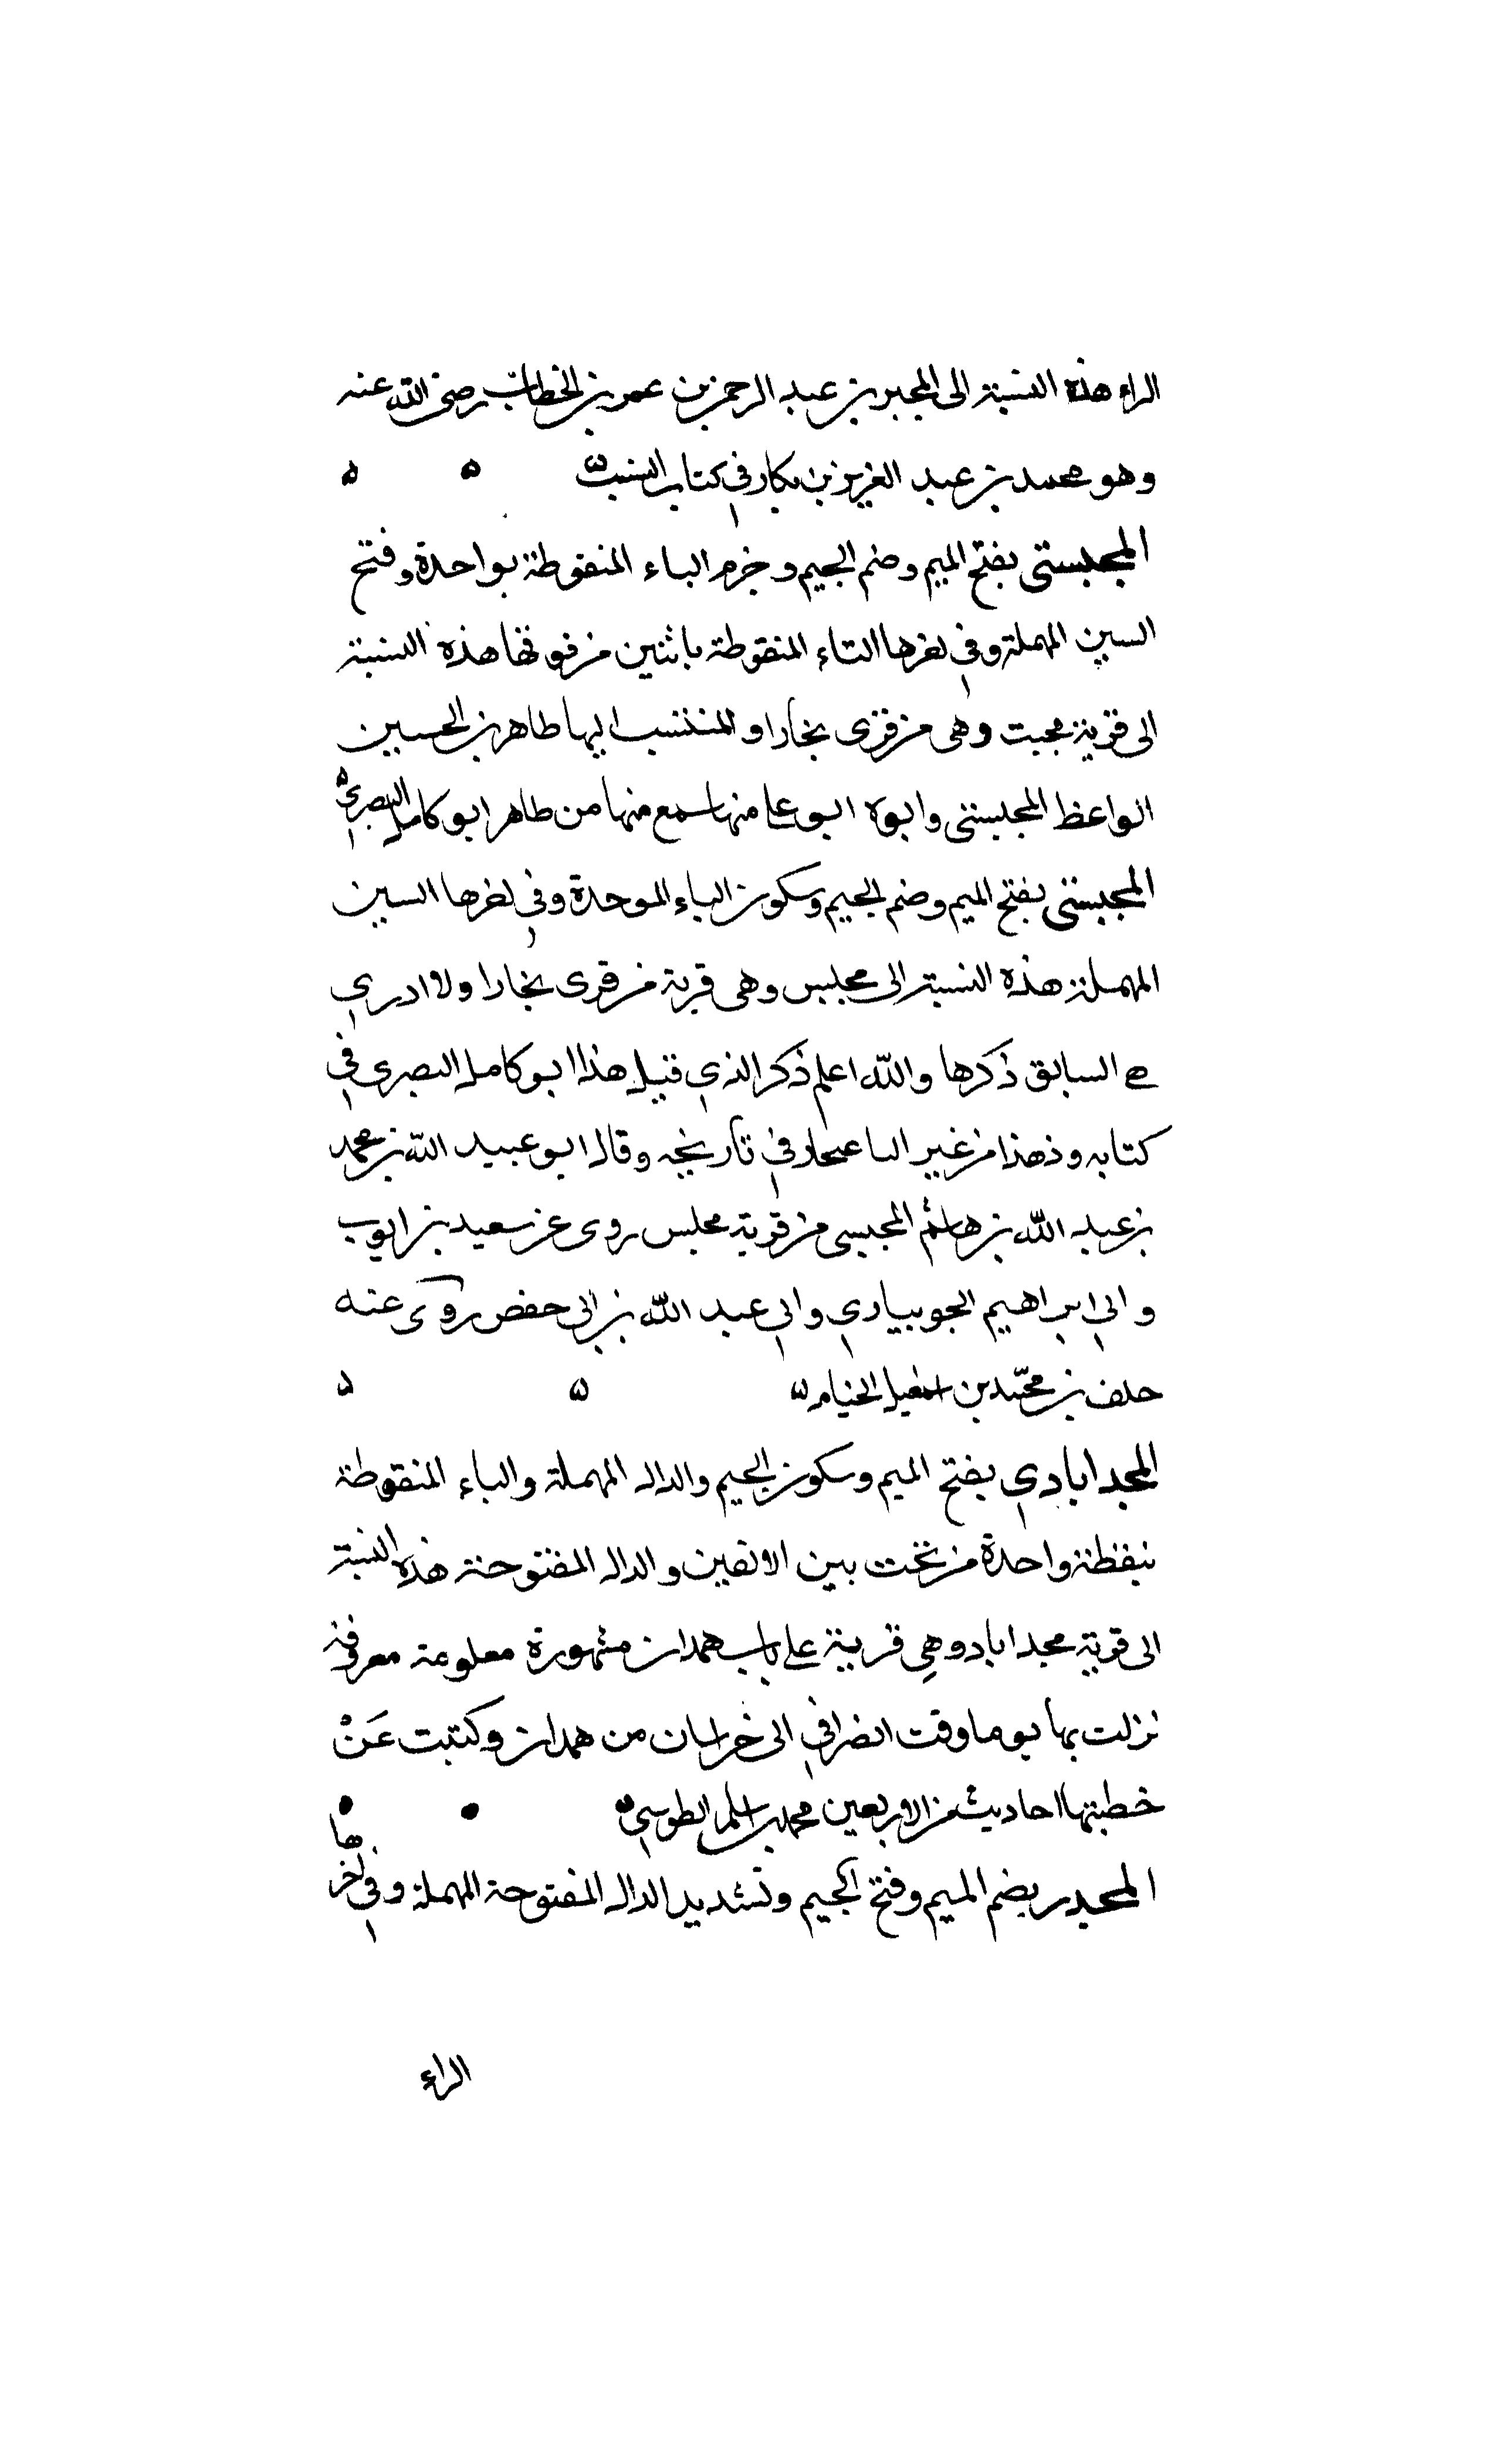 الراء هذه النسبة الى المجبر بن عبد الرحمن بن عمر بن الخطاب رضى الله عنه
وهو محمد بن عبد العزيز بن بكار في كتاب النسب
المجبستى بفتح الميم وضم الجيم وجزم الباء المنقوطة بواحدة وفتح
السين المهملة وفي اخرها التاء المنقوطة باثنين من فوقها هذه النسبة
الى قرية مجبست وهى من قرى بخارا و المنتسب اليها طاهر بن الحسين
الواعظ المجبستى وابوه ابو على منها سمع منها من طاهر ابو كامل البصري
المجبسى بفتح الميم وضم الجيم وسكون الباء الموحدة وفي اخرها السين
المهملة هذه النسبة الى مجبس وهى قرية من قرى بخارا ولا ادري
هى السابق ذكرها والله اعلم ذكر الذي قبل هذا ابو كامل البصرى في
كتابه وذهذا من غير في تاريخه وقال ابو عبيد الله بن محمد
بن عبد الله بن هاشم المجبسى من قرية مجبس روى عن سعيد بن ايوب
وابي ابراهيم الجويباري وابي عبد الله بن ابى حفص روى عنه
خلف بن محمد بن اسمعيل الخيام
المجدابادي بفتح الميم وسكون الجيم والدال المهملة والباء المنقوطة
بنقطة واحدة من تحت بين الالفين والدال المفتوحة هذه النسبة
الى قرية مجداباد وهي قرية على باب همدان مشهورة معلومة معرفة
نزلت بها يوما وقت انصرافي الى خراسان من همدان وكتبت عَنْ
خطيبها احاديث من الاربعين محمد بن اسلم الطوسي
المجدر بضم الميم وفتح الجيم وتشديد الدال المفتوحة المهملة وفي اخرها
الراء